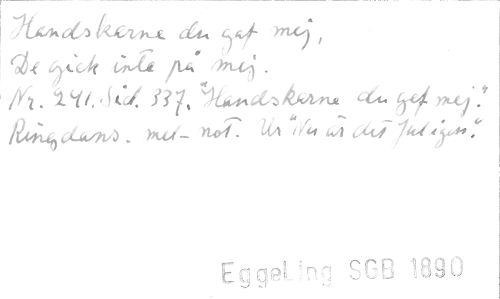 Handskarne du gaf mej,
De gick inte på mej.
Nr. 241. Sid. 337. "Handskarne du gaf mej."
Ringdans. mel-not. Ur "Nu är det Jul igen."
EggeLing SGB 1890